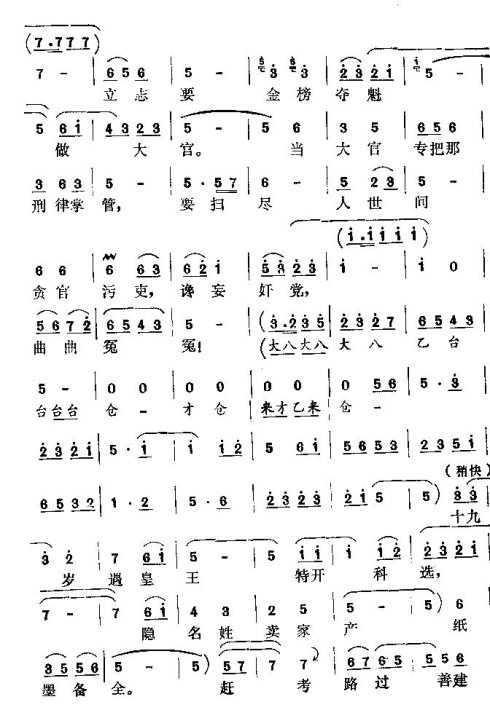 (7·777 7)
7 - | 6 5 6 | 5 - | 3 3 | 2 3 2 1 | 5 - |
立志要 金榜夺魁
5 6 1 | 4 3 2 3 | 5 - | 5 6 | 3 5 | 6 5 6 |
做大官。当大官专把那
3 6 3 | 5 - | 5·5 7 | 6 - | 5 2 3 | 5 - |
刑律掌管,要扫尽人世间
(1·1 1 1 1 1)
6 6 | 6 6 3 | 6 2 1 | 5 3 2 3 | 1 - | 1 0 |
贪官污吏,谗妄奸党,
5 6 7 2 | 6 5 4 3 | 5 - | (3·2 3 5 | 2 3 2 7 | 6 5 4 3 |
曲曲冤冤!(大八大八大八乙台
5 - | 0 0 | 0 0 | 0 0 | 0 5 6 | 5·3 |
台台台仓-才仓来才乙来仓-
2 3 2 1 | 5·1 | 1 1 2 | 5 6 1 | 5 6 5 3 | 2 3 5 1 |
(稍快)
6 5 3 2 | 1·2 | 5·6 | 3 2 3 | 2 1 5 | 5) 3 3 |
十九
3 2 | 7 6 1 | 5 - | 5 1 1 | 1 1 2 | 3 2 3 5 |
岁遇皇王特开科选,
7 - | 7 6 1 | 4 3 | 2 5 | 5 - | 5 6 |
隐名姓卖家产纸
3 5 5 6 | 5 - | 5) 5 7 | 7 7 | 6 7 6 5 | 5 5 |
墨备全。赶考路过善建